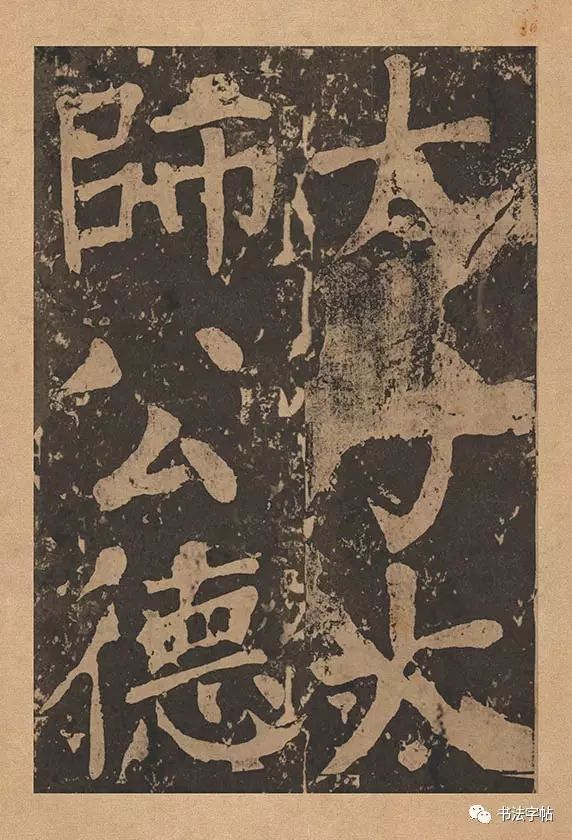 太子太
師公德
书法字帖